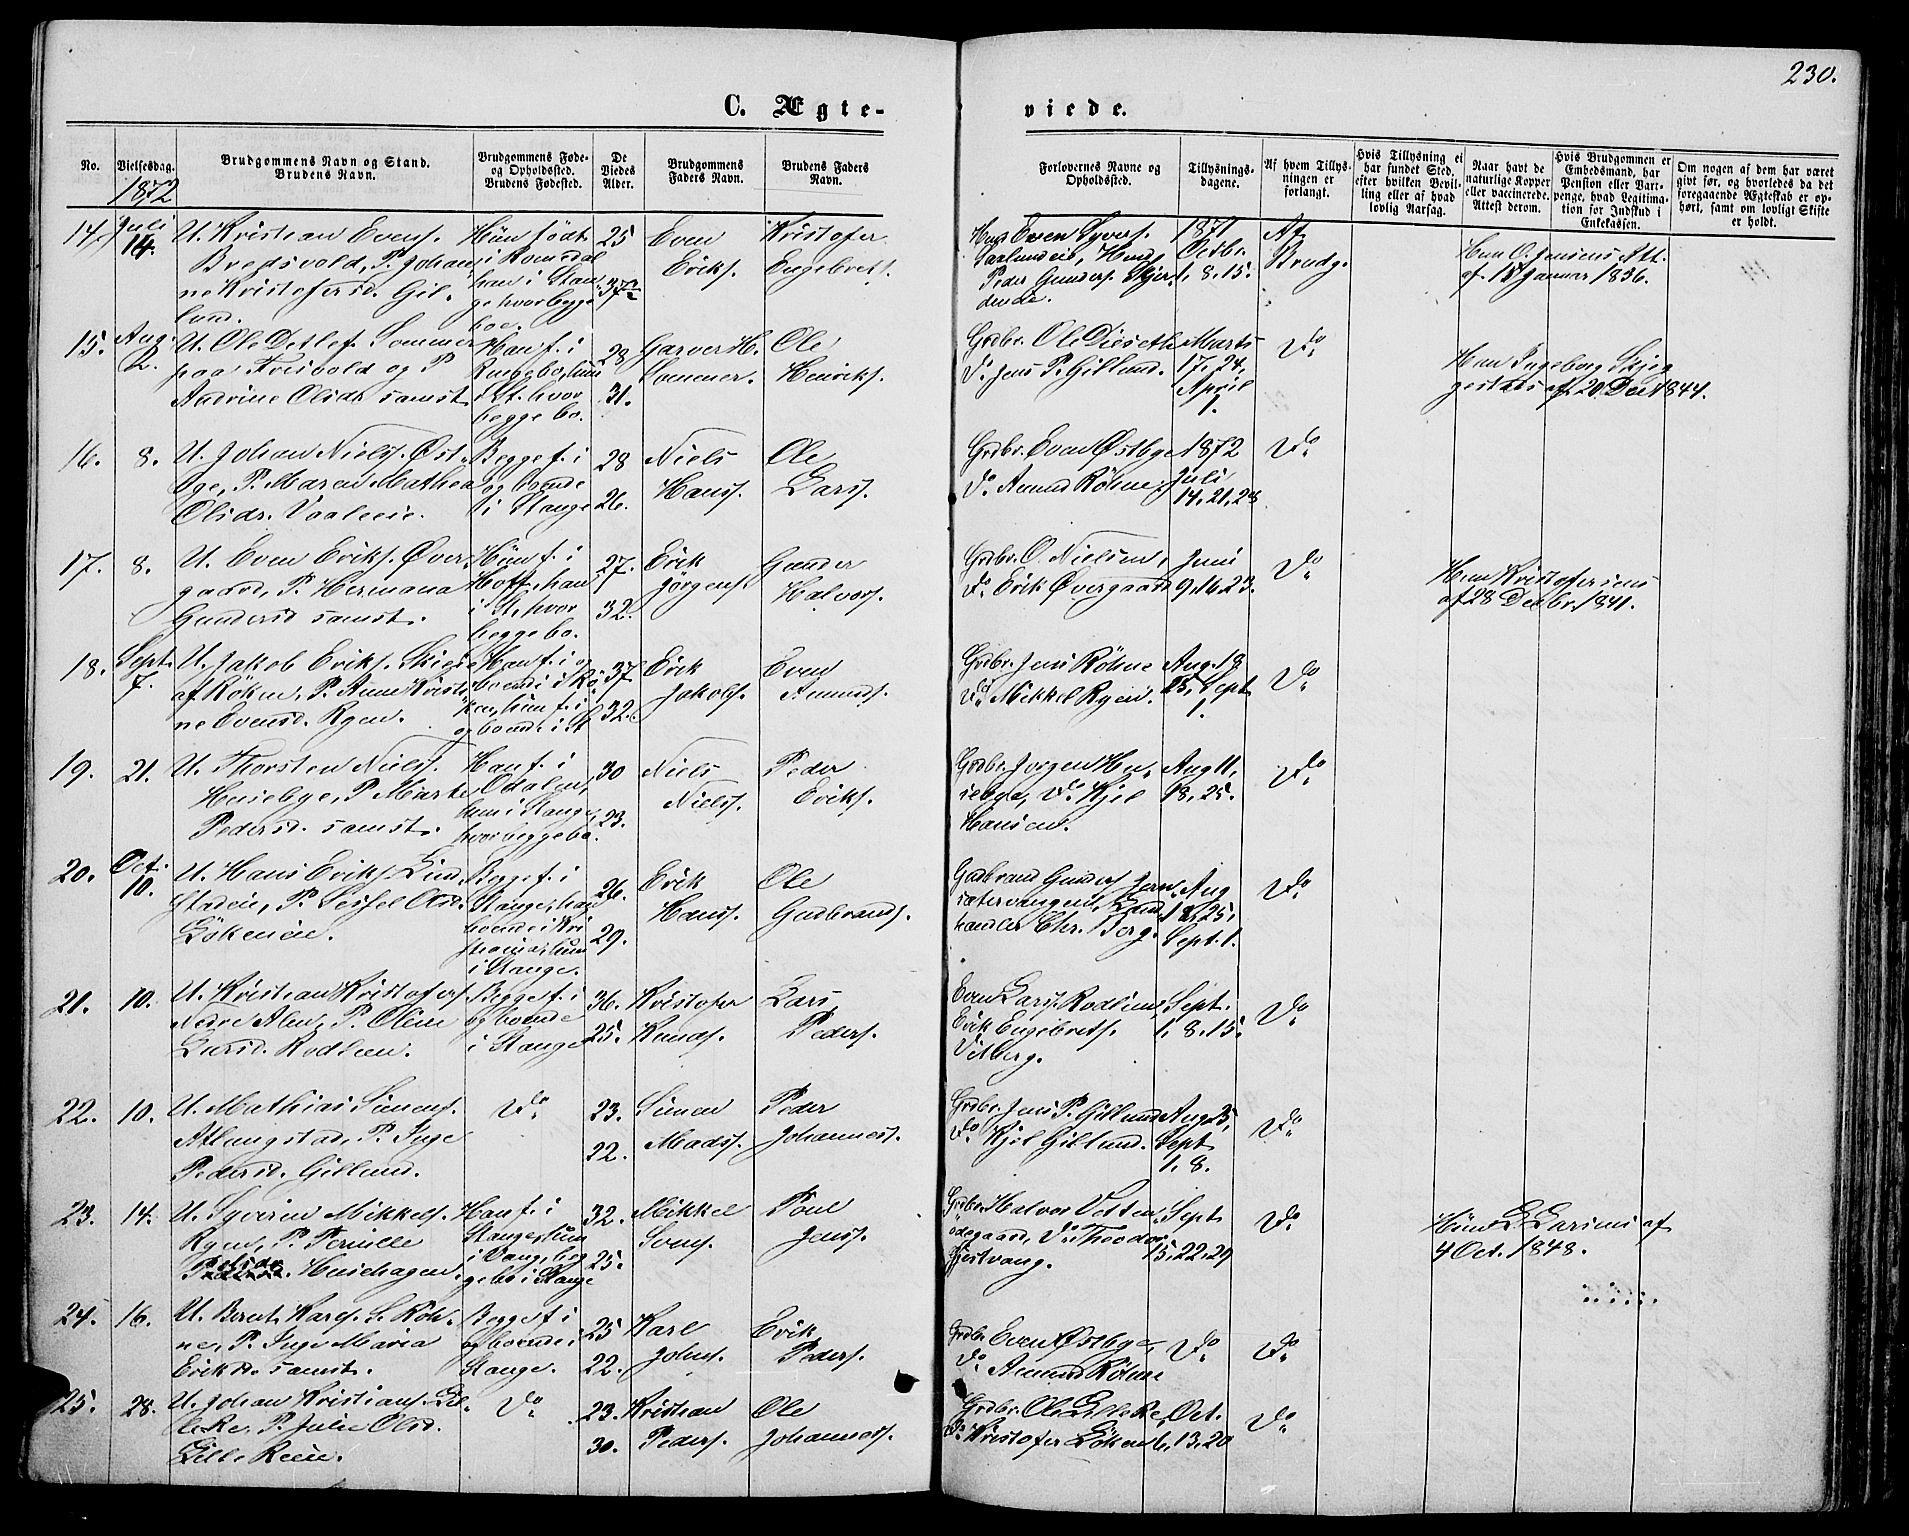 230.
C. Ægte-
viede.
No.
Vielsesdag.
Brudgommens Navn og Stand.
Brudens Navn.
Brudgommens Føde-
og Opholdssted.
Brudens Fødested.
De
Viedes
Alder.
Brudgommens
Faders Navn.
Brudens Faders
Navn.
Forlovernes Navne og
Opholdssted.
Tillysnings-
dagene.
Af hvem Tillys-
ningen er
forlangt.
Hvis Tillysning ei
har fundet Sted,
efter hvilken Bevil-
ling eller af hvad
lovlig Aarsag.
Naar havt de
naturlige Kopper
eller vaccinerede.
Attest derom.
Hvis Brudgommen er
Embedsmand, har
Pension eller Vart-
penge, hvad Legitima-
tion for Indskud i
Enkekassen.
Om nogen af dem har været
gift før, og hvorledes da det
foregaaende Ægteskab er op-
hørt, samt om lovligt Skifte
er holdt.
1872
14. Juli
14.
U. Kristian Evens.
Bredsvold, P. Johan-
ne Kristofersd. Gil-
lund.
Hun født
i Romsdal
han i Stan-
ge hvor begge
boe.
25
37½
Even
Eriks.
Kristofer
Engebrets.
Hus Even Syvers.
Saalundeie, Husm
Peder Gunders. Skjer-
deneie.
1871
Octbr.
1. 8. 15.
Af
Brudg.
Hun O. Jensens Att.
af 18 Januar 1836.
15. Aug.
2.
U. Ole Detlef Sommer
paa Frisvold og P
Andrine Olsdr. samst.
Han f. i
hun
i St. hvor
begge bo.
28
31.
Garver H.
Sommer.
Ole
Henriks.
Grdbr. Ole Diseth
Do Jens P. Gillund.
Marts
17, 24,
April
1.
Do
Hun Ingeborg Skjeg-
gestads af 20 Dec 1844.
16. 8.
U. Johan Niels. Øst-
bye, P. Maren Mathea
Olsdr. Vaaleeie.
Begge f. i
og boende
i Stange
28
26.
Niels
Hans.
Ole
Lars.
Grdbr. Even Østbye
Do Amund Røhne.
1872
Juli
14. 21. 28
Do
17. 8.
U. Even Eriks. Øver-
gaard, P. Hermana
Gundersd samst.
Hun f. i
Hoff, han
i St. hvor
begge bo.
27.
32.
Erik
Jørgens.
Gunder
Halvors.
Grdbr. O. Nielsen,
Do Erik Øvergaard
Juni
9. 16. 23.
Do
Hun Kristofersens
af 28 Decbr. 1841.
18. Sept.
7.
U. Jakob Eriks.
af Røken, P. Anne Kristi-
ne Evensd. Ryen.
Han f. i og
boende i Rø-
ken, hun f. i
og boende i St
37
32.
Erik
Jakobs.
Even
Amunds.
Grdbr. Jens Røhne
Do Mikkel Ryen.
Aug. 18
25, Sept
1.
Do
19. 21.
U. Thorsten Niels.
Husebye, P. Marte
Pedersd. samst.
Han f. i
Odalen,
hun i Stange,
hvor begge bo.
30
23.
Niels
Niels.
Peder
Eriks.
Grdbr. Jørgen Hu-
sebye, Do Kjel
Hansen.
Aug 11,
18, 25.
Do
20. Oct.
10.
U. Hans Eriks. Lind-
stadeie, P. Sessel Olsd.
Løkeneie.
Begge f. i
Stange, han
boende i Kri-
stiania, hun
i Stange.
26.
29.
Erik
Hans.
Ole
Gudbrands.
Gudbrand Gunders. Jern-
sætervangen, Land-
handler Chr. Borg.
Aug
18, 25,
Sept. 1.
Do
21. 10.
U. Kristian Kristofers.
Nedre Alm, P. Oline
Larsd. Rodluen.
Begge f. i
og boende
i Stange
36.
25.
Kristofer
Knuds.
Lars
Peders.
Even Lars. Rodluen,
Erik Engebrets.
Vitberg.
Sept.
1. 8. 15.
Do
22. 10.
U. Mathias Simens.
Atlungstad, P. Inge
Pedersd. Gillund.
Do
23.
22.
Simen
Mads.
Peder
Johannes.
Grdbr. Jens P. Gillund
Do Kjel Gillund.
Aug. 25,
Sept
1. 8.
Do
23. 14.
U. Syverin Mikkels.
Ryen, P. Pernille
Husehagen.
Han f. i
Stange, hun
i Vang, beg-
ge bo i Stange
32.
25.
Mikkel
Svens.
Poul
Jens.
Grdbr. Halvor Vetten-
ødegaard, Do Theodor
Gjestvang.
Sept
15. 22. 29
Do
Huns L. Larsens af
4 Oct. 1848.
24. 16.
U. Bernt Karls. S. Røh-
ne, P. Inge Maria
Eriksd. samst.
Begge f. i
og boende i
Stange.
25
22.
Karl
Johns.
Erik
Peders.
Grdbr. Even Østbye,
Do Amund Røhne
Do
Do
25. 28.
U. Johan Kristians. Lil-
le Re, P. Julie Olsd.
Lille Reeie.
Do
23.
30.
Kristian
Peders.
Ole
Johannes.
Grdbr. Ole Lille Re,
Do Kristofer Løken
Oct.
6, 13. 20
Do